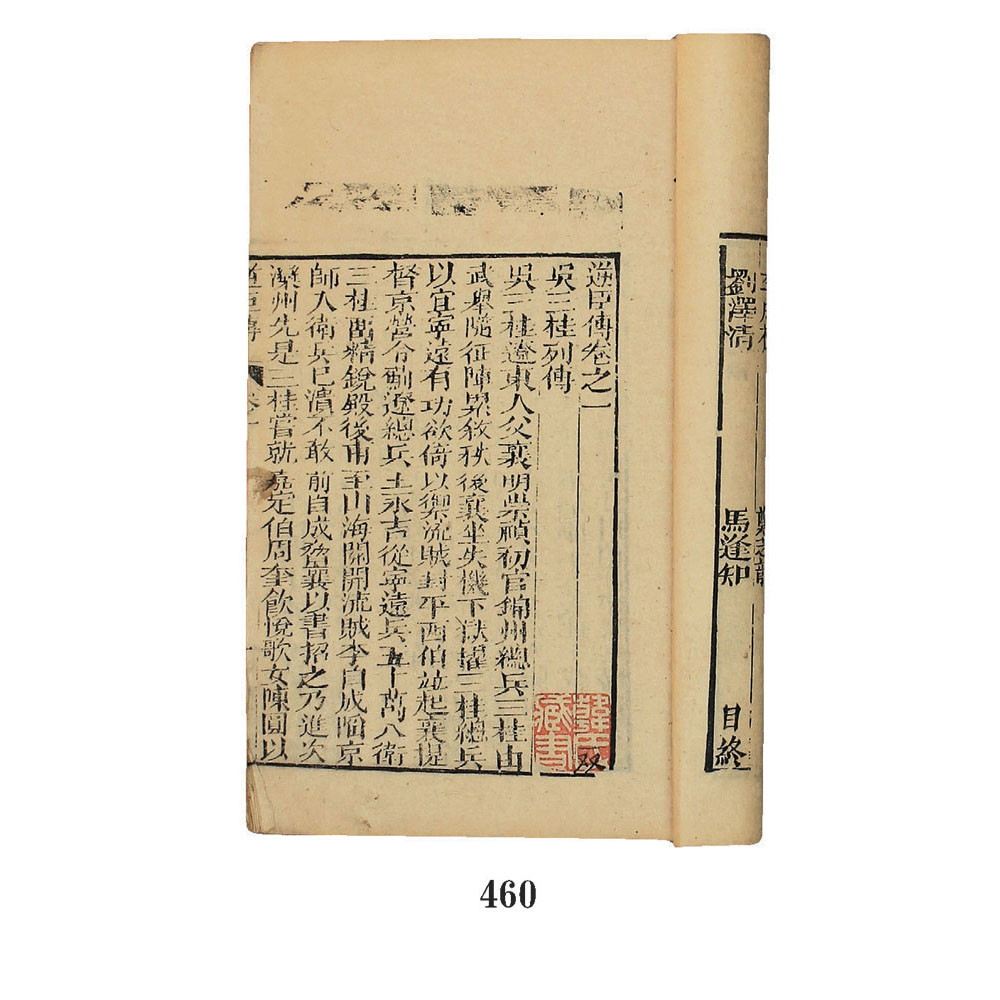 劉澤清 馬逢知 目終
逆臣傳卷之一
吳三桂列傳
吳三桂遼東人父襄明崇禎初官錦州總兵三桂由
武舉隨征陣累敘秩後襄坐失機下獄擢三桂總兵
以宜寧遠有功欲倚以禦流賊封平西伯並起襄提
督京營令薊遼總兵王永吉從寧遠兵五十萬入衛
三桂簡精銳殿後甫至山海關聞流賊李自成陷京
師入衛兵已潰不敢前自成脅襄以書招之乃進次
灤州先是三桂嘗就嘉定伯周奎飲悅歌女陳圓以
逆臣傳 卷一
藏書
双
460